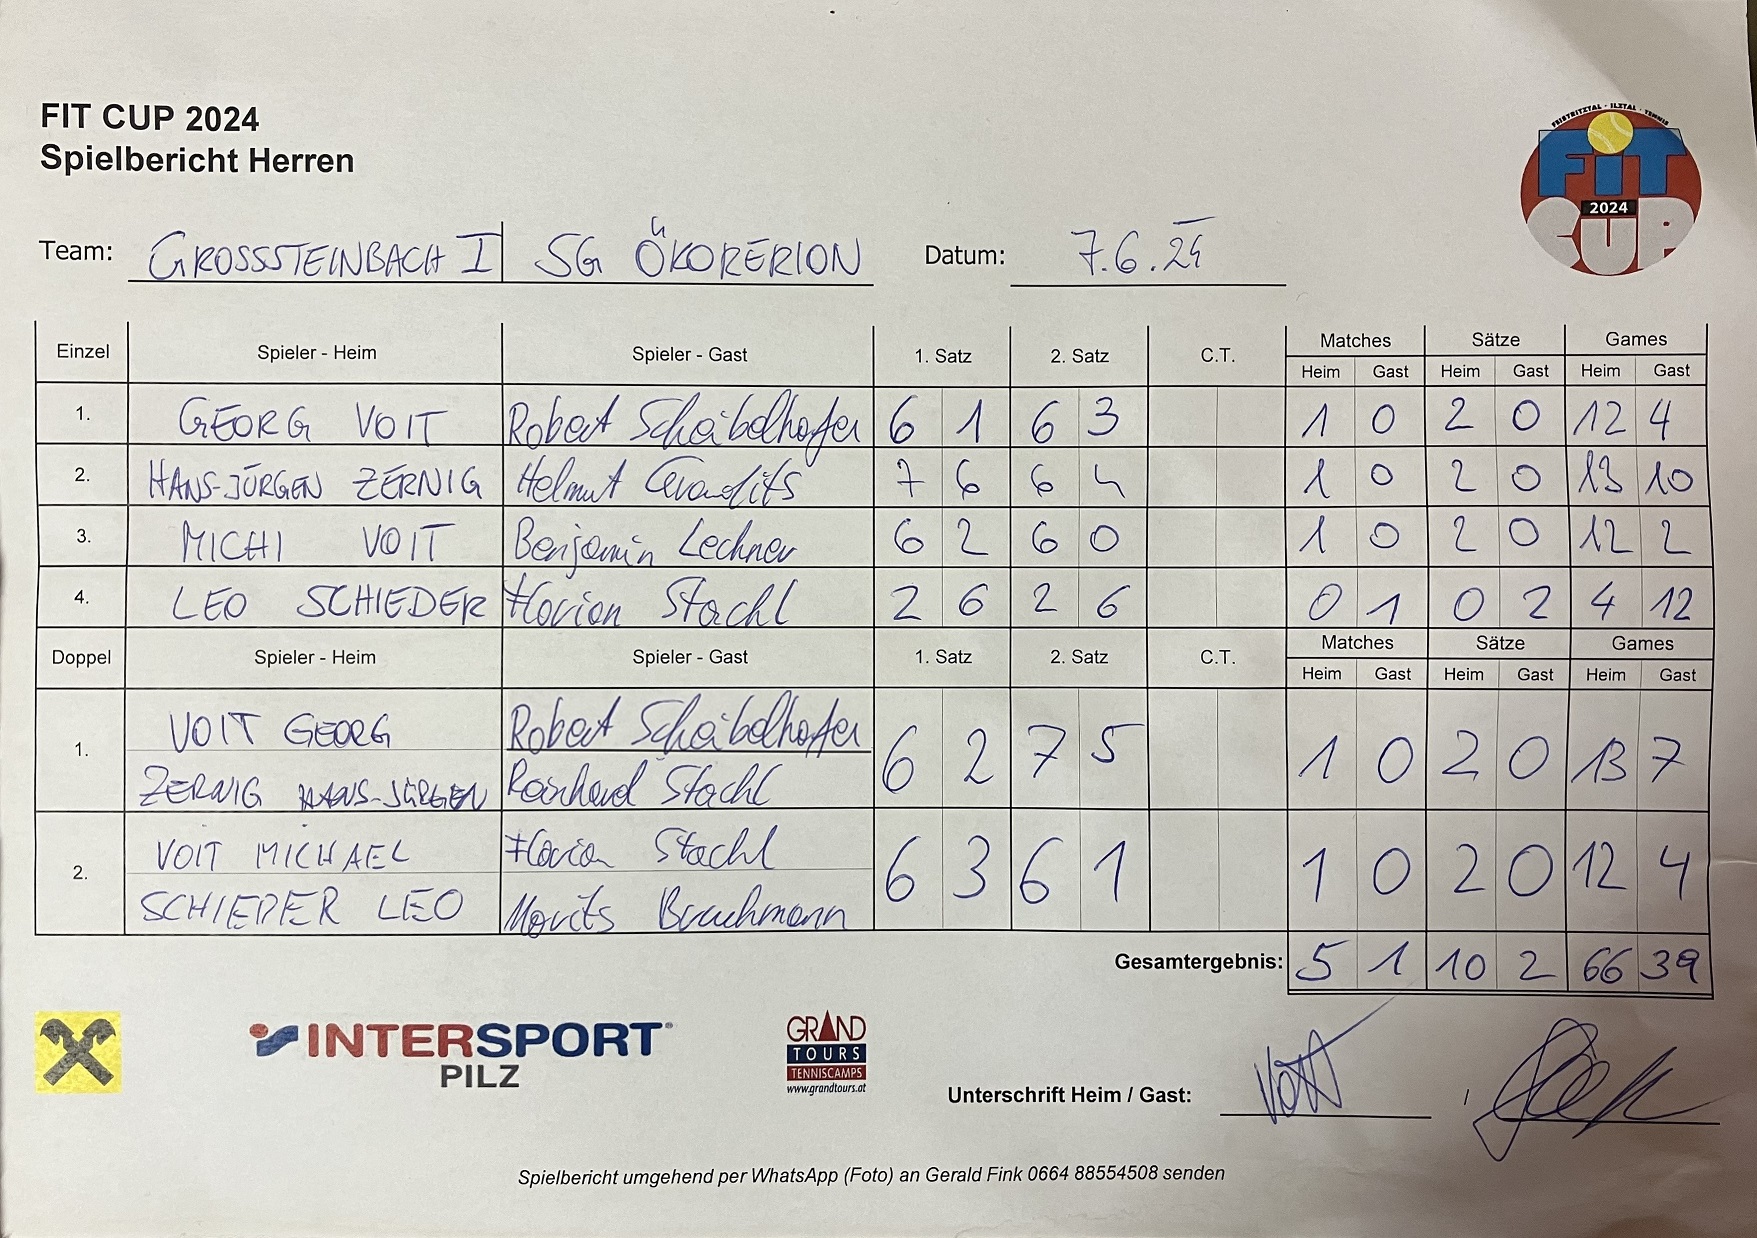 FIT CUP 2024
Spielbericht Herren
FEISTRITZTAL · ILZTAL · TENNIS
FiT
2024
CUP
Team: GROSSSTEINBACH I SG ÖKORERION Datum: 7.6.24
Einzel Spieler - Heim Spieler - Gast 1. Satz 2. Satz C.T. Matches Sätze Games
Heim Gast Heim Gast Heim Gast
1. GEORG VOIT Robert Scheibelhofer 6 1 6 3 1 0 2 0 12 4
2. HANS-JÜRGEN ZERNIG Helmut 7 6 6 4 1 0 2 0 13 10
3. MICHI VOIT Benjamin Lechner 6 2 6 0 1 0 2 0 12 2
4. LEO SCHIEDER Florian Stachl 2 6 2 6 0 1 0 2 4 12
Doppel Spieler - Heim Spieler - Gast 1. Satz 2. Satz C.T. Matches Sätze Games
Heim Gast Heim Gast Heim Gast
1. VOIT GEORG Robert Scheibelhofer 6 2 7 5 1 0 2 0 13 7
ZERNIG HANS-JÜRGEN Reinhard Stachl
2. VOIT MICHAEL Florian Stachl 6 3 6 1 1 0 2 0 12 4
SCHIEDER LEO Moritz Bruchmann
Gesamtergebnis: 5 1 10 2 66 39
INTERSPORT
PILZ
GRAND
TOURS
TENNISCAMPS
www.grandtours.at
Unterschrift Heim / Gast: Voit /
Spielbericht umgehend per WhatsApp (Foto) an Gerald Fink 0664 88554508 senden